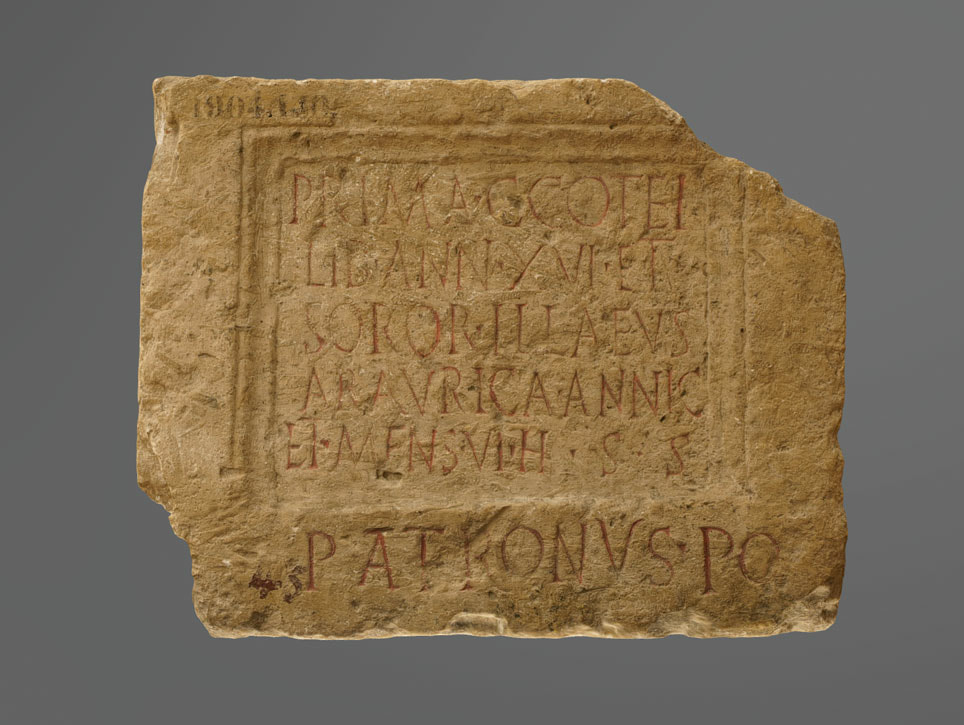 PRIMA·C·COTEI
LIB·ANN·XVI·ET
SOROR·ILLAEVS
ARAVRICA·ANNIC
ET·MENS·VI·H·S·S
PATRONVS·PO